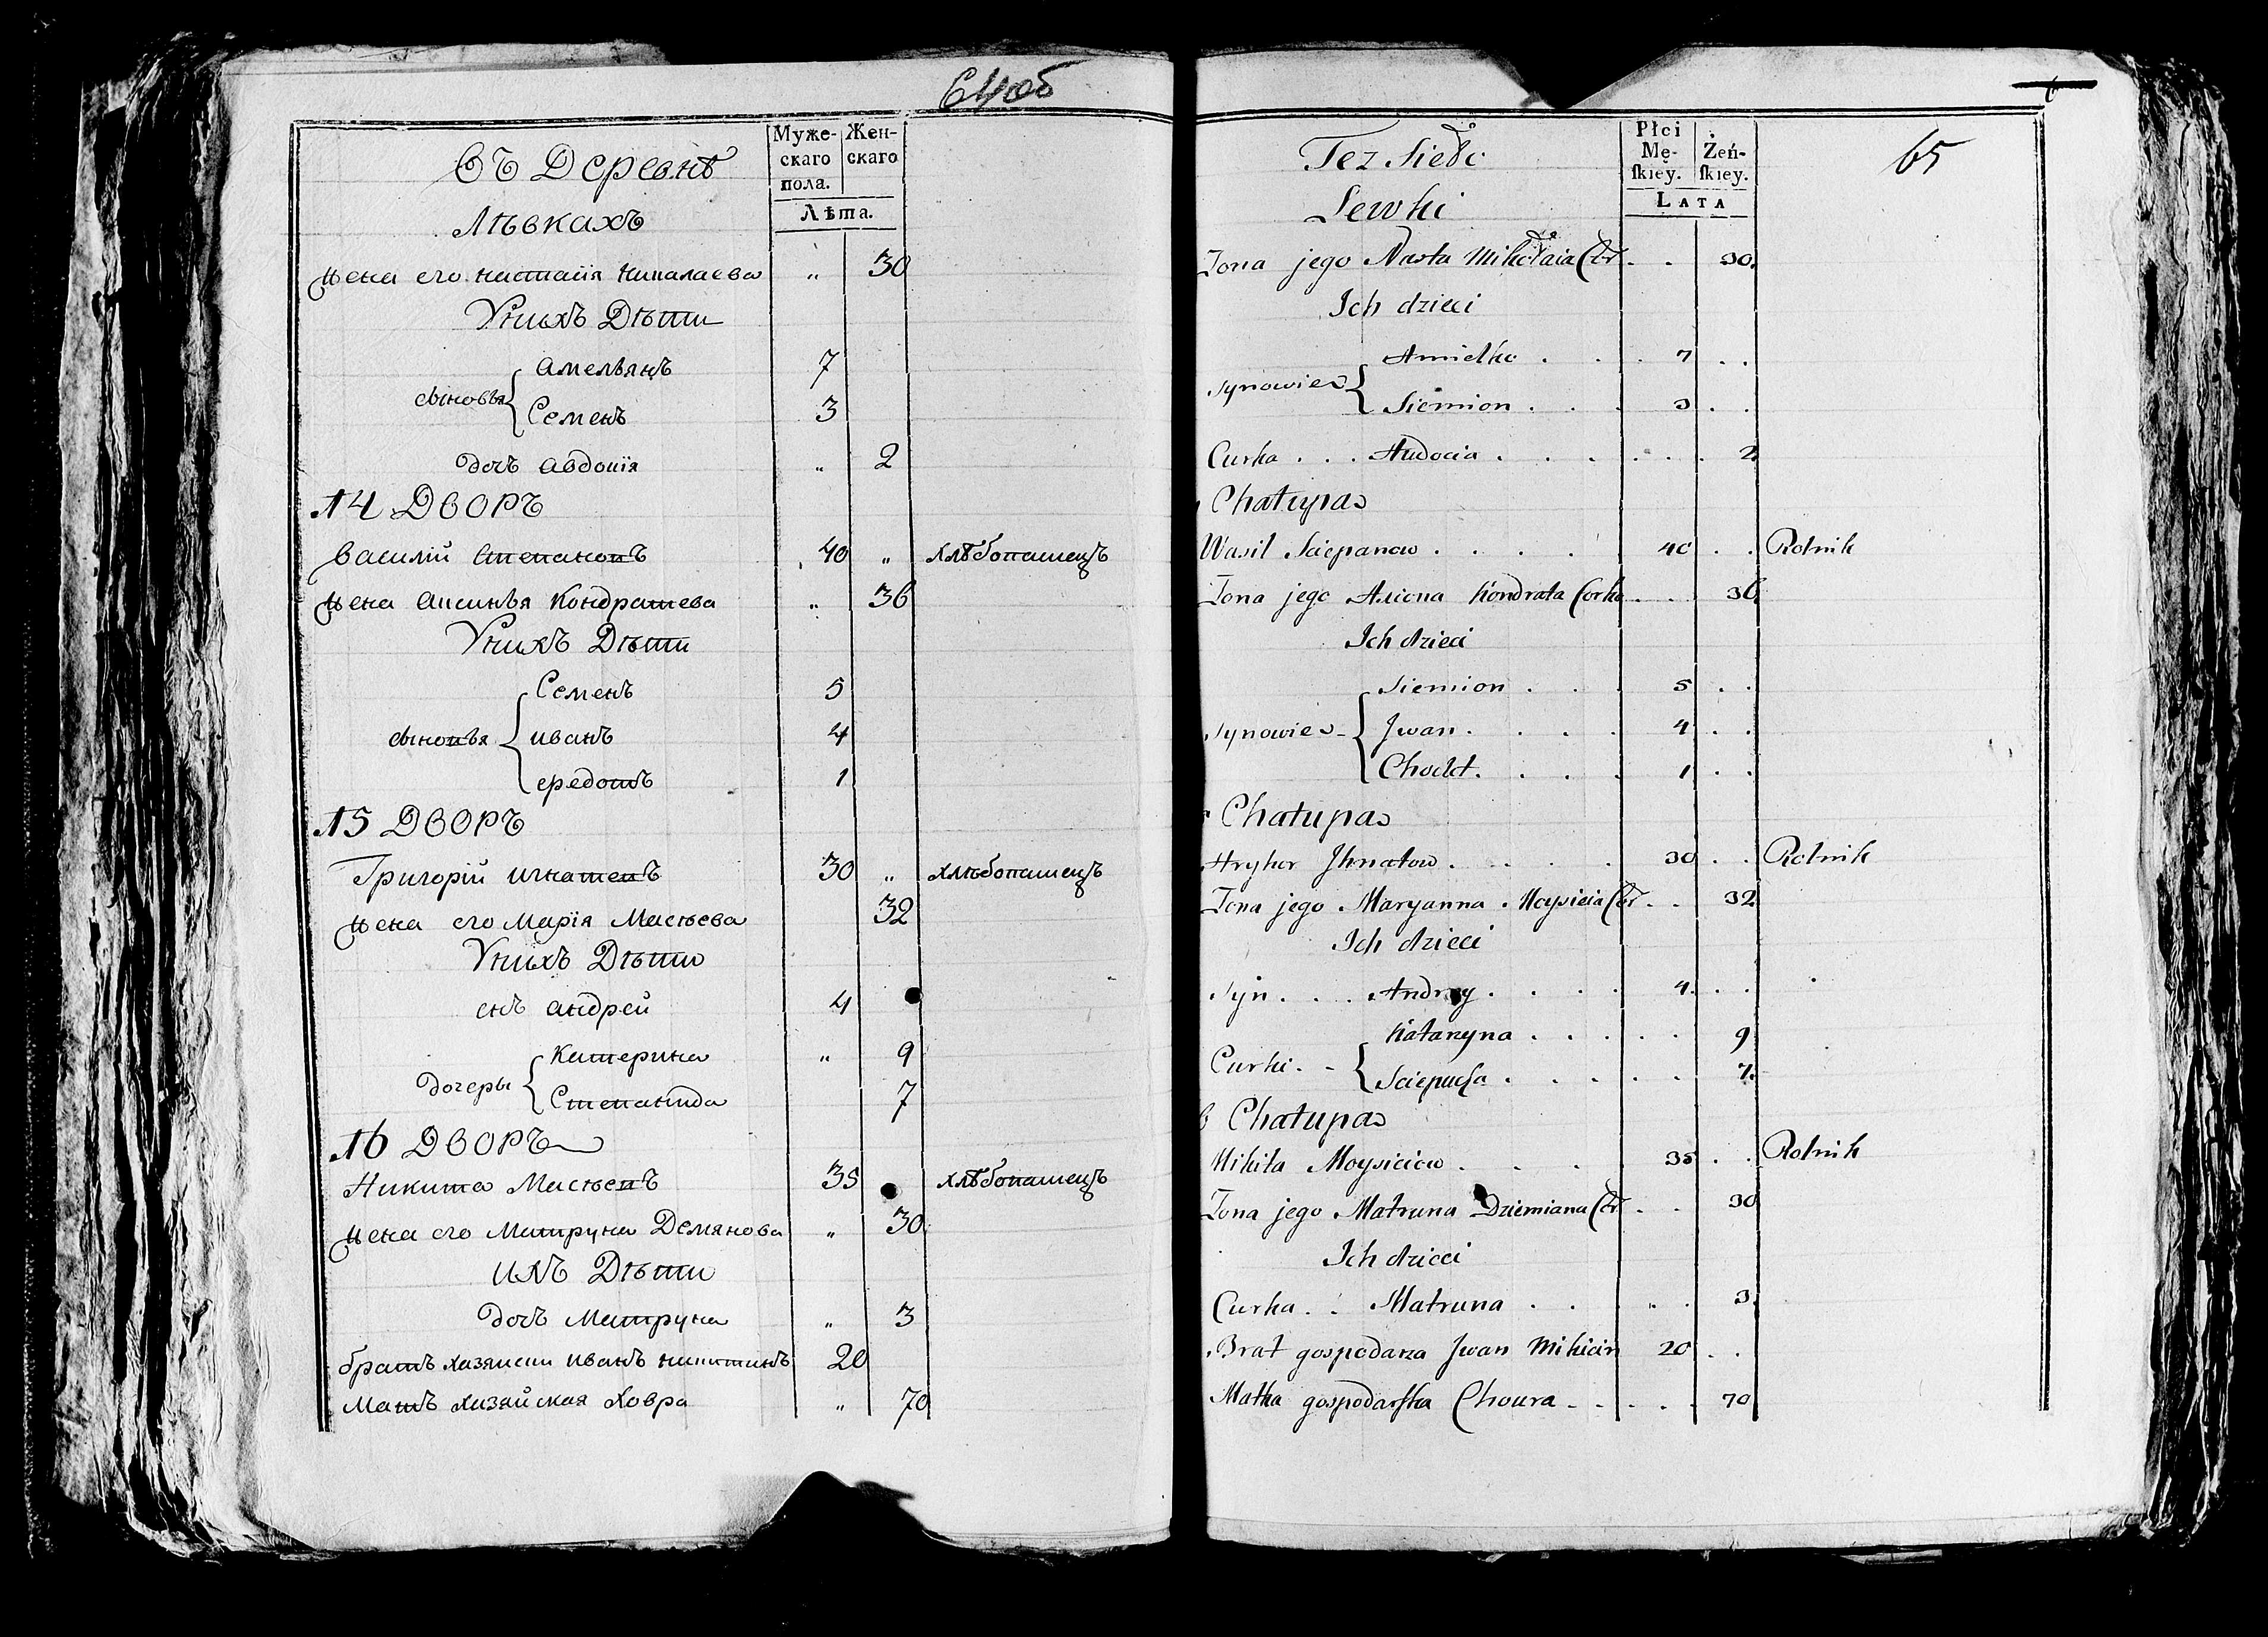 64об
Въ Деревнѣ
Муже-
скаго
пола.
Жен-
скаго
Лѣта.
Лѣвкахъ
жена его настасiя николаева " 30
Унихъ Дѣти
сыновья
Амельянъ 7
Семенъ 3
дочъ авдоцiя " 2
14 Дворъ
Василiй Степановъ 40 " хлѣбопашецъ
жена аксинья Кондратева " 36
Унихъ Дѣти
сыновья
Семенъ 5
иванъ 4
ередотъ 1
15 Дворъ
Григорiй игнатевъ 30 " хлѣбопашецъ
жена его Марiя Масѣева 32
Унихъ Дѣти
снъ андрей 4
дочеры
Катерина " 9
Степанида 7
16 Дворъ
Никита Масѣевъ 35 хлѣбопашецъ
жена его Матруна Демянова " 30
ихъ Дѣти
дочъ Матруна " 3
братъ хазяиски иванъ никитинъ 20
Матъ хазяйская Ховра " 70
65
Tez Sieło
Płci
Mę-
ſkiey.
Żeń-
ſkiey.
LATA
Lewki
Żona jego Nasta Mikołaia Cór. . . 30
Ich dzieci
Synowie
Amielko . . . 7 . .
Siemion . . . 3 . .
Curka . . . Audocia . . . . . . . 2
Chałupa
Wasil Sciepanow . . . . . 40 . . Rolnik
Żona jego Axiona Kondrata Corka . . 36
Ich dzieci
Synowie
Siemion . . . 5 . .
Jwan . . . . 4 . .
Chodot . . . . 1 . .
Chałupa
Hryhor Jhnatow . . . . . 30 . . Rolnik
Żona jego Maryanna Moysieia Cór . . 32
Ich dzieci
Syn . . . Andrzy . . . . 4 . .
Curki . -
Katarzyna . . . . . 9
Sciepucſa . . . . . 7
6 Chałupa
Mikita Moysieiow . . . 35 . . Rolnik
Żona jego Matruna Dziemiana Cór . . 30
Ich dzieci
Curka . . Matruna . . " . 3
Brat gospodarza Jwan Mikicin 20 . .
Matka gospodarſka Choura - . . . . 70